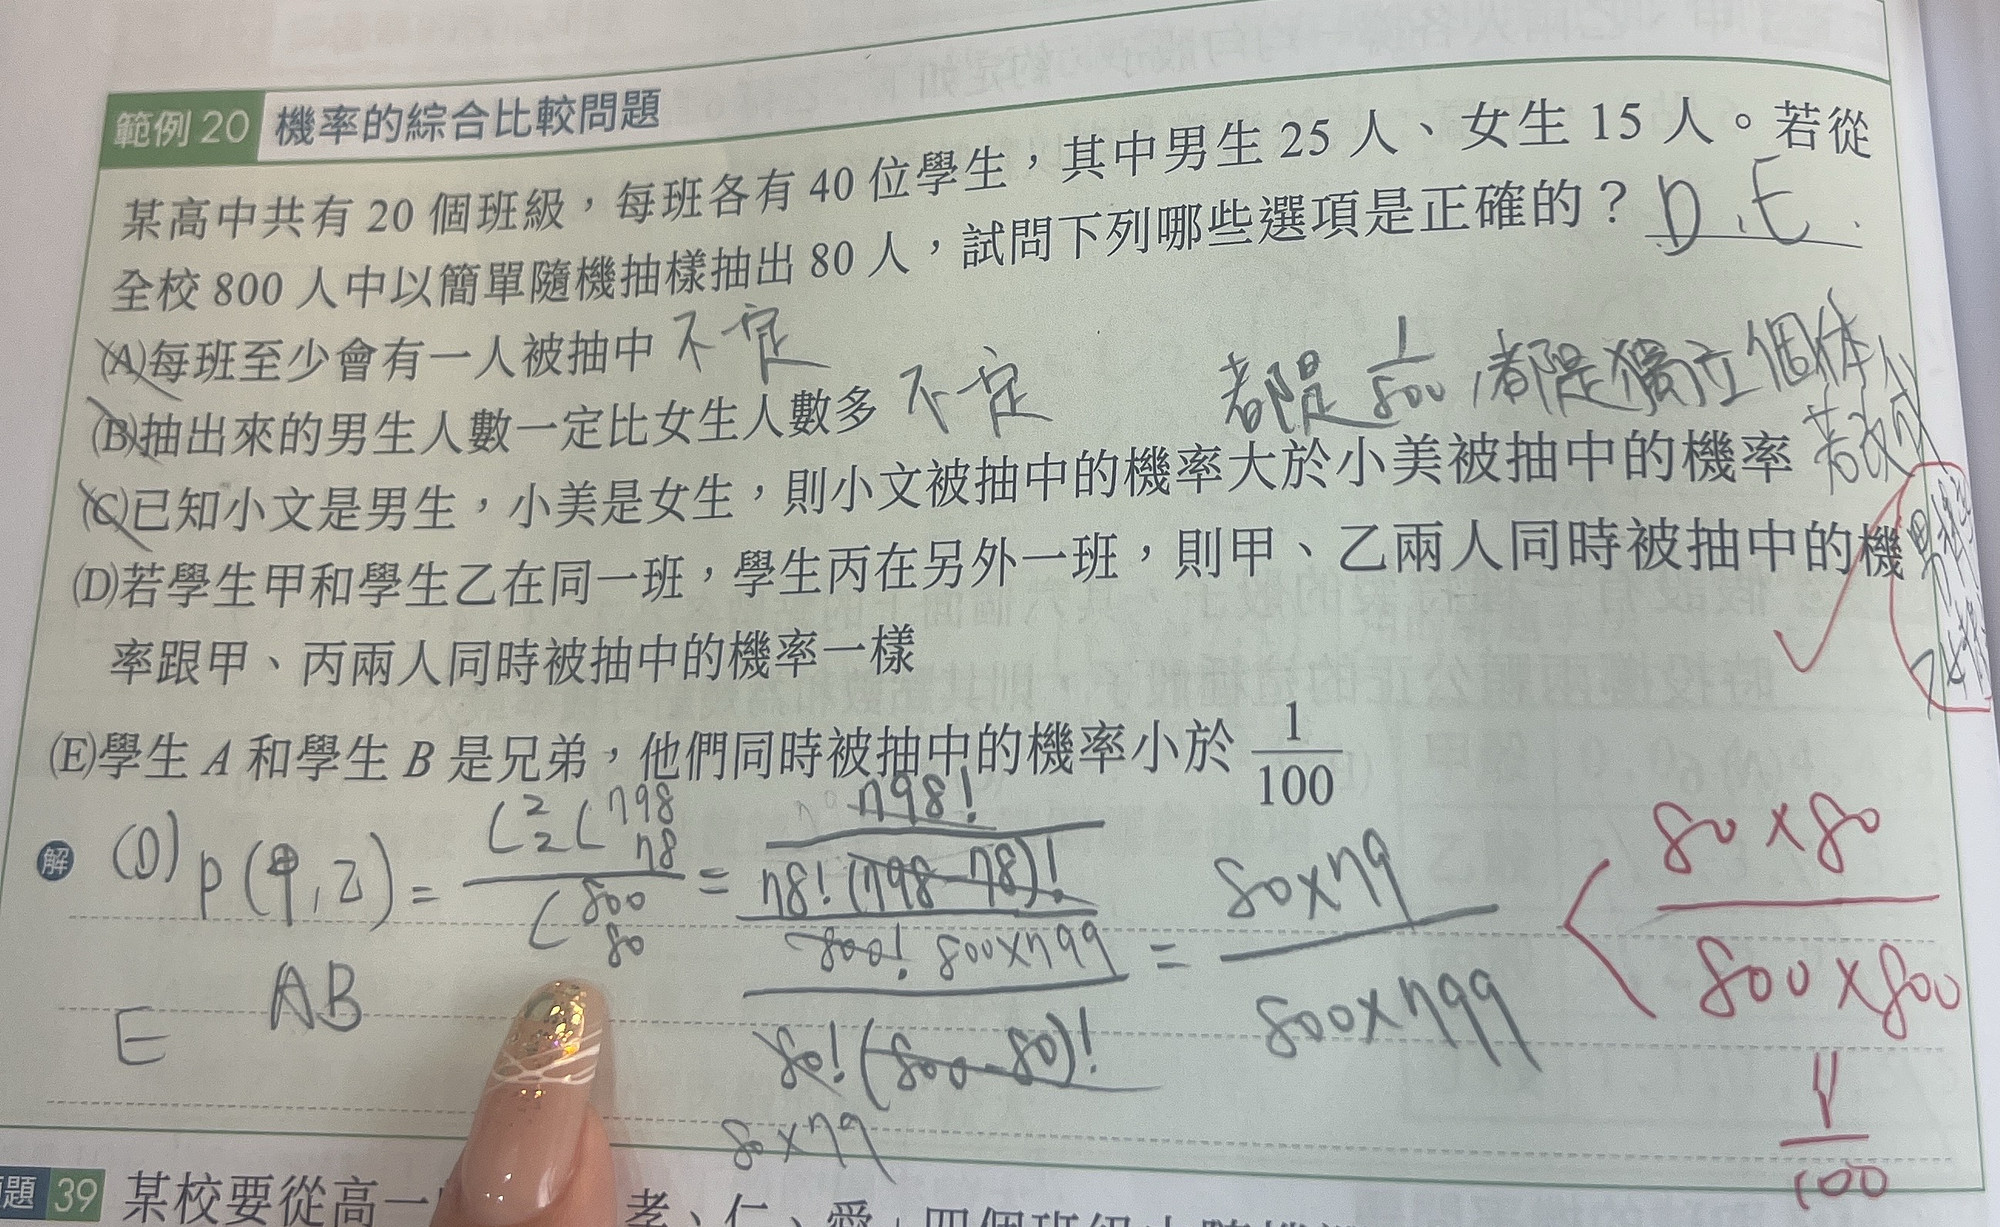 範例 20 機率的綜合比較問題
某高中共有 20 個班級，每班各有 40 位學生，其中男生 25 人、女生 15 人。若從
全校 800 人中以簡單隨機抽樣抽出 80 人，試問下列哪些選項是正確的？ D、E.
(A)每班至少會有一人被抽中 不一定
都是 1/800，都是獨立個体
(B)抽出來的男生人數一定比女生人數多 不一定
若改成
(C)已知小文是男生，小美是女生，則小文被抽中的機率大於小美被抽中的機率
(D)若學生甲和學生乙在同一班，學生丙在另外一班，則甲、乙兩人同時被抽中的機
率跟甲、丙兩人同時被抽中的機率一樣
(E)學生 A 和學生 B 是兄弟，他們同時被抽中的機率小於 1/100
解 (D) P(甲,乙) = C 2 2 C 798 78 / C 800 80 = 798! / 78!(798-78)! / 800! 800×799 / 80!(800-80)! = 80×79 / 800×799 < 80×80 / 800×800
E AB
1/100
80×79
題 39 某校要從高一 孝、仁、愛